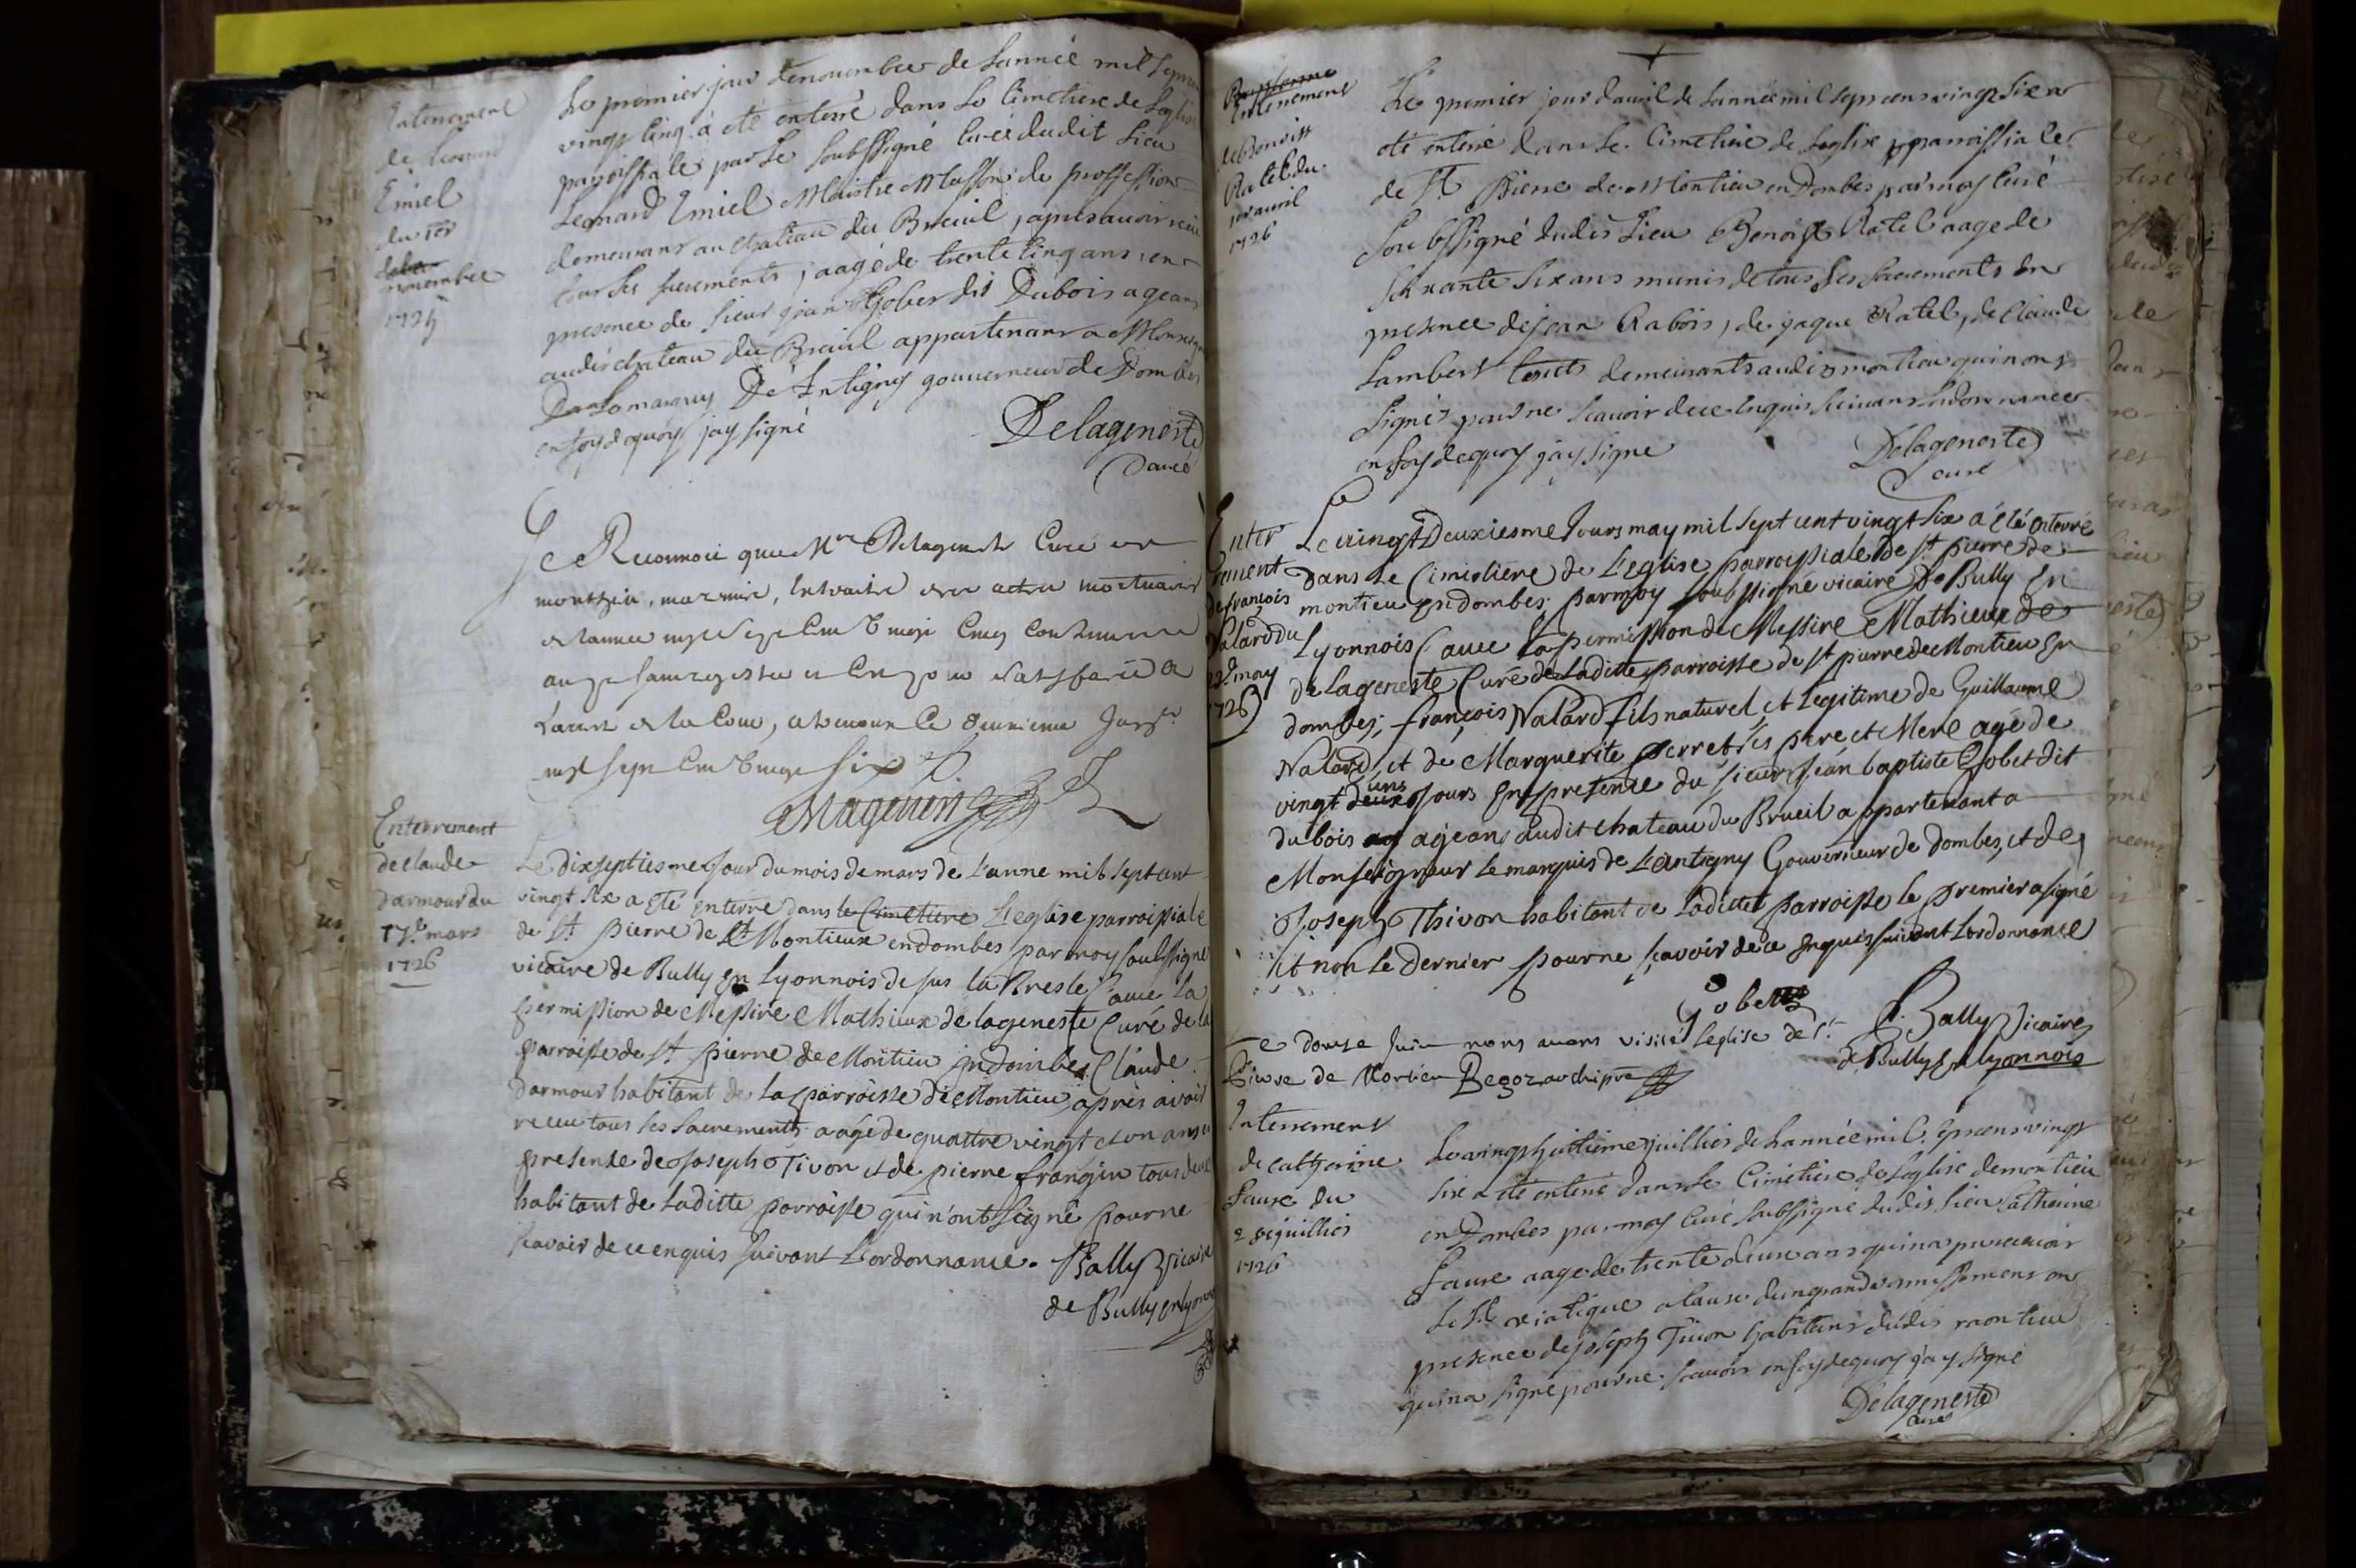 Enterrement
de Leonard
Emiel
du 1er
novembre
1725
Le premier jour denovembre de Lannée mil sept cent
vingt cinq a eté enterré dans Le Cimetiere de Leglise
parroissiale par Le soubssigné Curé dudit Lieu
Leonard Emiel Maistre Masson de proffession
demeurant au chateau du Breuil, apres avoir receu
tous ses sacrements, aagé de trente cinq ans, en
presence de sieur jean Gobet dit Dubois ageant
audit chateau du Breuil appartenant a Monseigneur
Le marquis De Lantigny gouverneur de Dombes
en foy dequoy jay signé
Delageneste
Curé
Je Reconnois que Mre Delageneste Curé de
montieu, ma remis, lextraict des actes mortuaires
de lannee mil sept cent vingt cinq conforme
au present registre et ce pour satisfaire a
larret de la Cour, a Trevoux Ce deuxieme janvier
mil sept cent vingt six
Enterrement
de Claude
Darmour du
17e mars
1726
Le dixseptiesme Jour du mois de mars de L'anne mil sept cent
vingt six a eté enterré dans le Cimetiere L'eglise parroissiale
de St pierre de Montieux en dombes par moy soussigné
vicaire de Bully En Lyonnois de sus la Bresle avec La
permission de Messire Mathieux de lageneste Curé de la
parroisse de St pierre de Montieu En dombes Claude
Darmour habitant de La parroisse de Montieu, après avoir
receu tous ses sacrements aagé de quattre vingt et un ans en
presence de Joseph Tivon et de pierre frangin tous deux
habitant de Laditte parroisse qui n'ont signé pour ne
scavoir de ce enquis suivant L'ordonnance. Bally Vicaire
de Bully en Lyonnois
Enterrement
de Benoist
Ratel du
1er avril
1726
Le premier jour d'avril de Lannée mil sept cens vingt six a
eté enterré dans Le Cimetiere de Leglise parroissiale
de St Pierre de Montieu en Dombes par moy Curé
soubssigné dudit Lieu Benoist Ratel aagé de
soixante six ans munis de tous ses sacrements En
presence de jean Rabois, de jaque Ratel, de Claude
Lambert touts demeurants audit montieu qui n'ont
signés pour ne scavoir de ce enquis suivant Lordonnance
en foy dequoy j'ay signé
Delageneste
curé
Enter
rement
de françois
Nalard du
22e may
1726
Le vingt Deuxiesme Jours may mil sept cent vingt six a été enterré
dans Le Cimistiere de L'eglise parroissiale de St pierre de
montieu En dombes, par moy soubssigné vicaire De Bully En
Lyonnois avec La permission de Messire Mathieux de
de Lageneste Curé de Laditte parroisse de St pierre de Montieu En
dombes; françois Nalard fils naturel et Legitime de Guillaume
Nalard et de Marguerite perret ses pere et Mere agé de
vingt deux ans jours En presence du sieur Jean baptiste Gobet dit
dubois ag ageant audit chateau du Brueil appartenant a
Monseigneur Le marquis de Lantigny Gouverneur de dombes, et de
Joseph Thivon habitant de Laditte parroisse le premier a signé
et non Le dernier pour ne scavoir de ce enquis suivant Lordonnance
Gobet
B. Bally Vicaire
de Bully En Lyonnois
Le douse Juin nous avons visité Leglise de St
Pierre de Montieu Begoz archipre
Enterrement
de Catherine
faure du
28 juilliet
1726
Le vingt huitieme juilliet de Lannée mil sept cens vingt
six a eté enterré dans Le Cimetiere de Leglise de montieu
en Dombes par moy Curé soubssigné dudit Lieu Catherine
faure aagé de trente deux ans qui n'a pu recevoir
Le St viatique a cause d'un grand vomissement en
presence de joseph Tivon habitant dudit montieu
qui n'a signé pour ne scavoir en foy dequoy j'ay signé
Delageneste
Curé